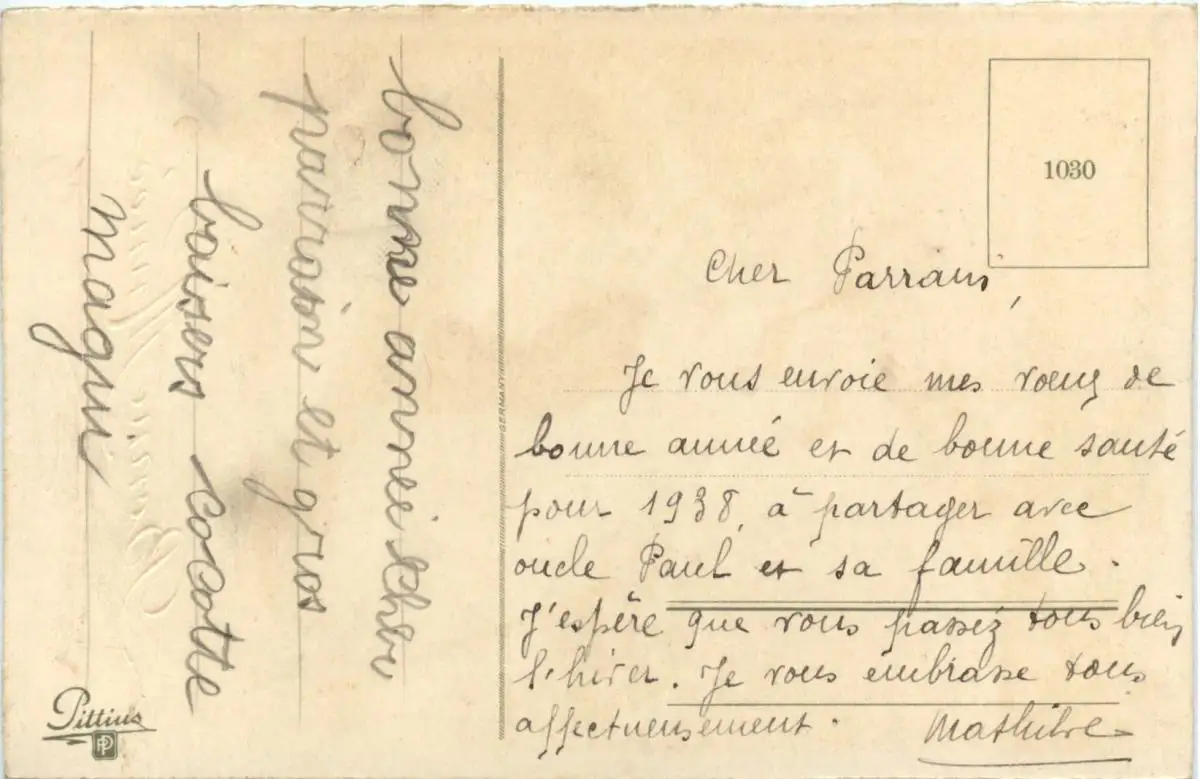 bonne année cher
parrain et gros
baisers cocotte
magui
Pittius
PP
GERMANY
1030
Cher Parrain,
Je vous envoie mes vœux de
bonne année et de bonne santé
pour 1938, à partager avec
oncle Paul et sa famille.
J'espère que vous passez tous bien
l'hiver. Je vous embrasse tous
affectueusement. Mathilde